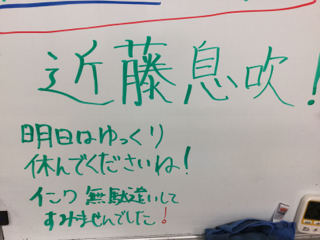 近藤息吹!
明日はゆっくり
休んでくださいね!
インク無駄遣いして
すみませんでした!